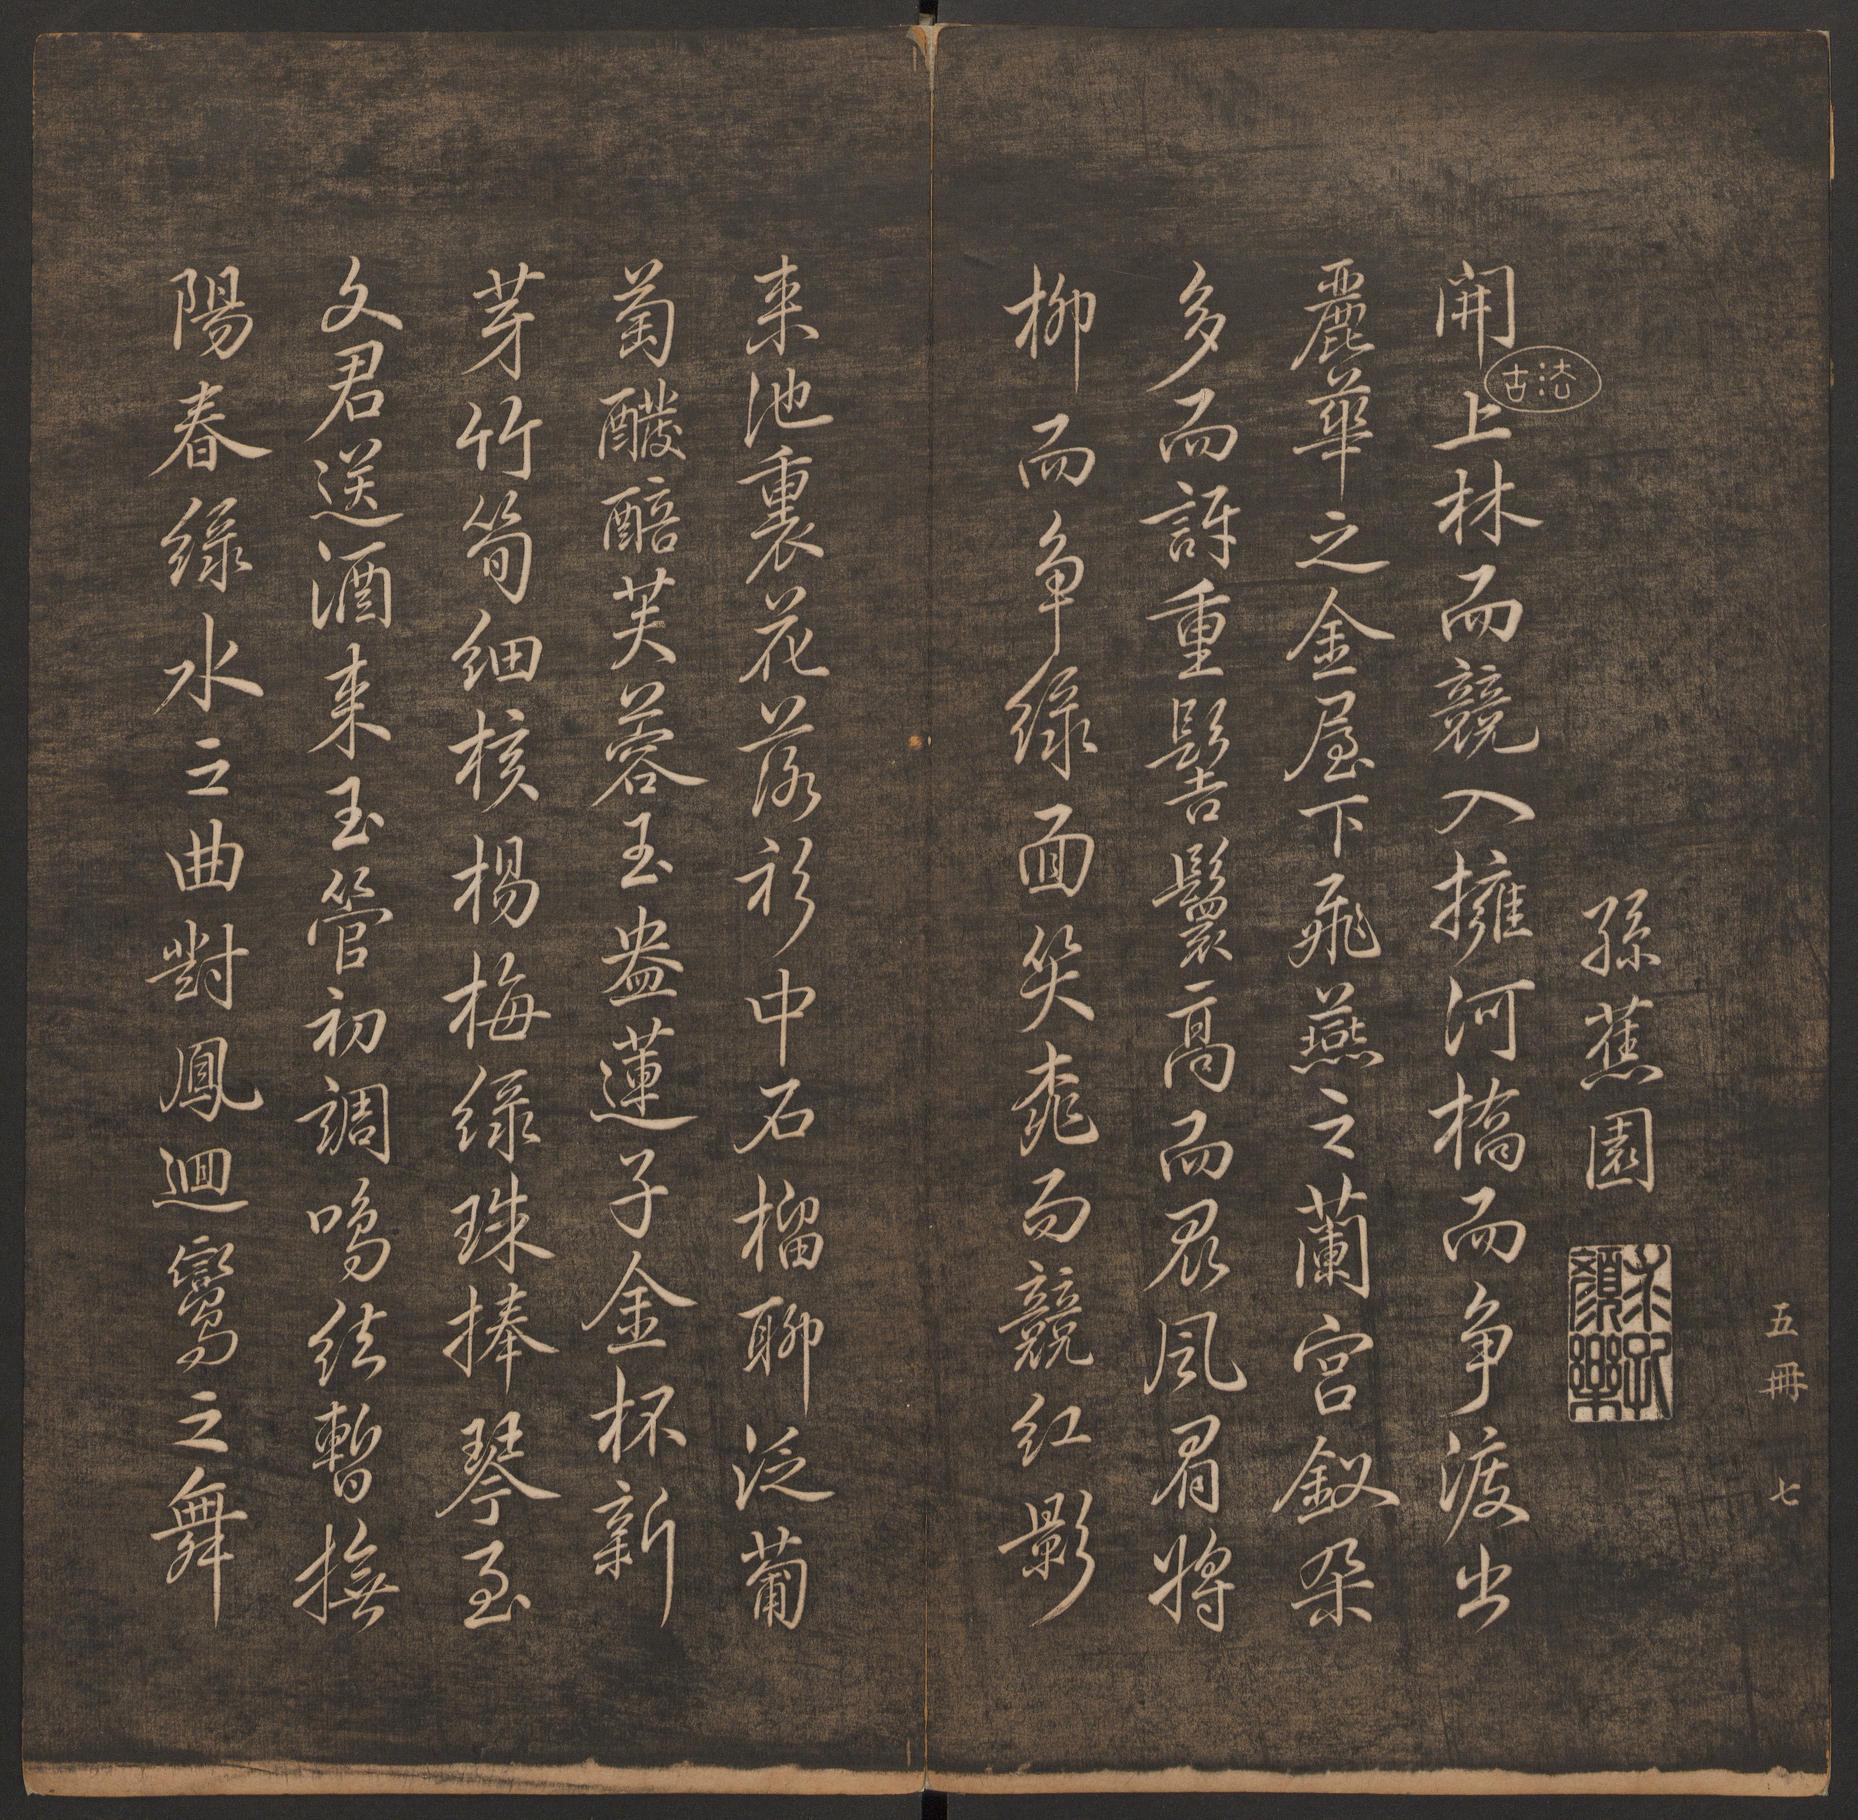 五冊 七
孫蕉園
求孔顏樂
法古
開上林而競入擁河橋而争渡出
麗華之金屋下飛燕之蘭宮釵朵
多而訝重髻鬟高而畏風眉將
柳而争綠面笑桃而競紅影
来池裏花落衫中石榴聊泛葡
萄醱醅芙蓉玉盎蓮子金杯新
芽竹筍細核楊梅綠珠捧琴至
文君送酒来玉管初調鳴絃暫撫
陽春綠水之曲對鳳迴鸞之舞